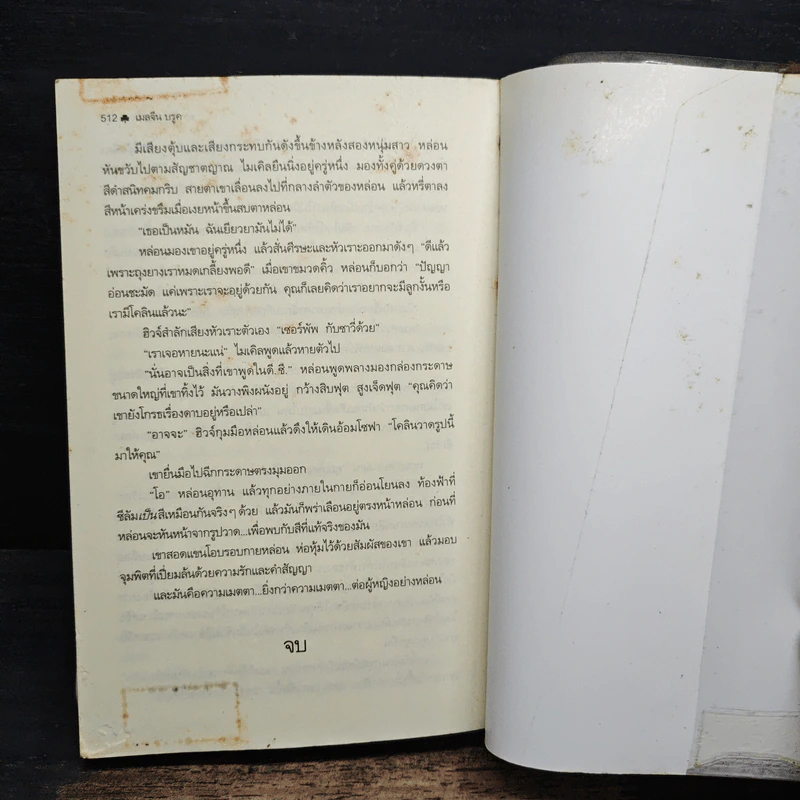 512 ♣ เมลจีน บรูค
มีเสียงตุ้บและเสียงกระทบกันดังขึ้นข้างหลังสองหนุ่มสาว หล่อน
หันขวับไปตามสัญชาตญาณ ไมเคิลยืนนิ่งอยู่ครู่หนึ่ง มองทั้งคู่ด้วยดวงตา
สีดำสนิทคมกริบ สายตาเขาเลื่อนลงไปที่กลางลำตัวของหล่อน แล้วหรี่ตาลง
สีหน้าเคร่งขรึมเมื่อเงยหน้าขึ้นสบตาหล่อน
“เธอเป็นหมัน ฉันเยียวยามันไม่ได้”
หล่อนมองเขาอยู่ครู่หนึ่ง แล้วสั่นศีรษะและหัวเราะออกมาดังๆ “ดีแล้ว
เพราะถุงยางเราหมดเกลี้ยงพอดี” เมื่อเขาขมวดคิ้ว หล่อนก็บอกว่า “ปัญญา
อ่อนชะมัด แค่เพราะเราจะอยู่ด้วยกัน คุณก็เลยคิดว่าเราอยากจะมีลูกงั้นหรือ
เรามีโคลินแล้วนะ”
ฮิวจ์สำลักเสียงหัวเราะตัวเอง “เซอร์พัพ กับซาวี่ด้วย”
“เราเจอหายนะแน่” ไมเคิลพูดแล้วหายตัวไป
“นั่นอาจเป็นสิ่งที่เขาพูดในดี..ซี.” หล่อนพูดพลางมองกล่องกระดาษ
ขนาดใหญ่ที่เขาทิ้งไว้ มันวางพิงผนังอยู่ กว้างสิบฟุต สูงเจ็ดฟุต “คุณคิดว่า
เขายังโกรธเรื่องดาบอยู่หรือเปล่า”
“อาจจะ” ฮิวจ์กุมมือหล่อนแล้วดึงให้เดินอ้อมโซฟา “โคลินวาดรูปนี้
มาให้คุณ”
เขายื่นมือไปฉีกกระดาษตรงมุมออก
“โอ” หล่อนอุทาน แล้วทุกอย่างภายในกายก็อ่อนโยนลง ท้องฟ้าที่
ซีลัมเป็นสีเหมือนกันจริงๆ ด้วย แล้วมันก็พร่าเลือนอยู่ตรงหน้าหล่อน ก่อนที่
หล่อนจะหันหน้าจากรูปวาด...เพื่อพบกับสีที่แท้จริงของมัน
เขาสอดแขนโอบรอบกายหล่อน ห่อหุ้มไว้ด้วยสัมผัสของเขา แล้วมอบ
จุมพิตที่เปี่ยมล้นด้วยความรักและคำสัญญา
และมันคือความเมตตา...ยิ่งกว่าความเมตตา...ต่อผู้หญิงอย่างหล่อน
จบ